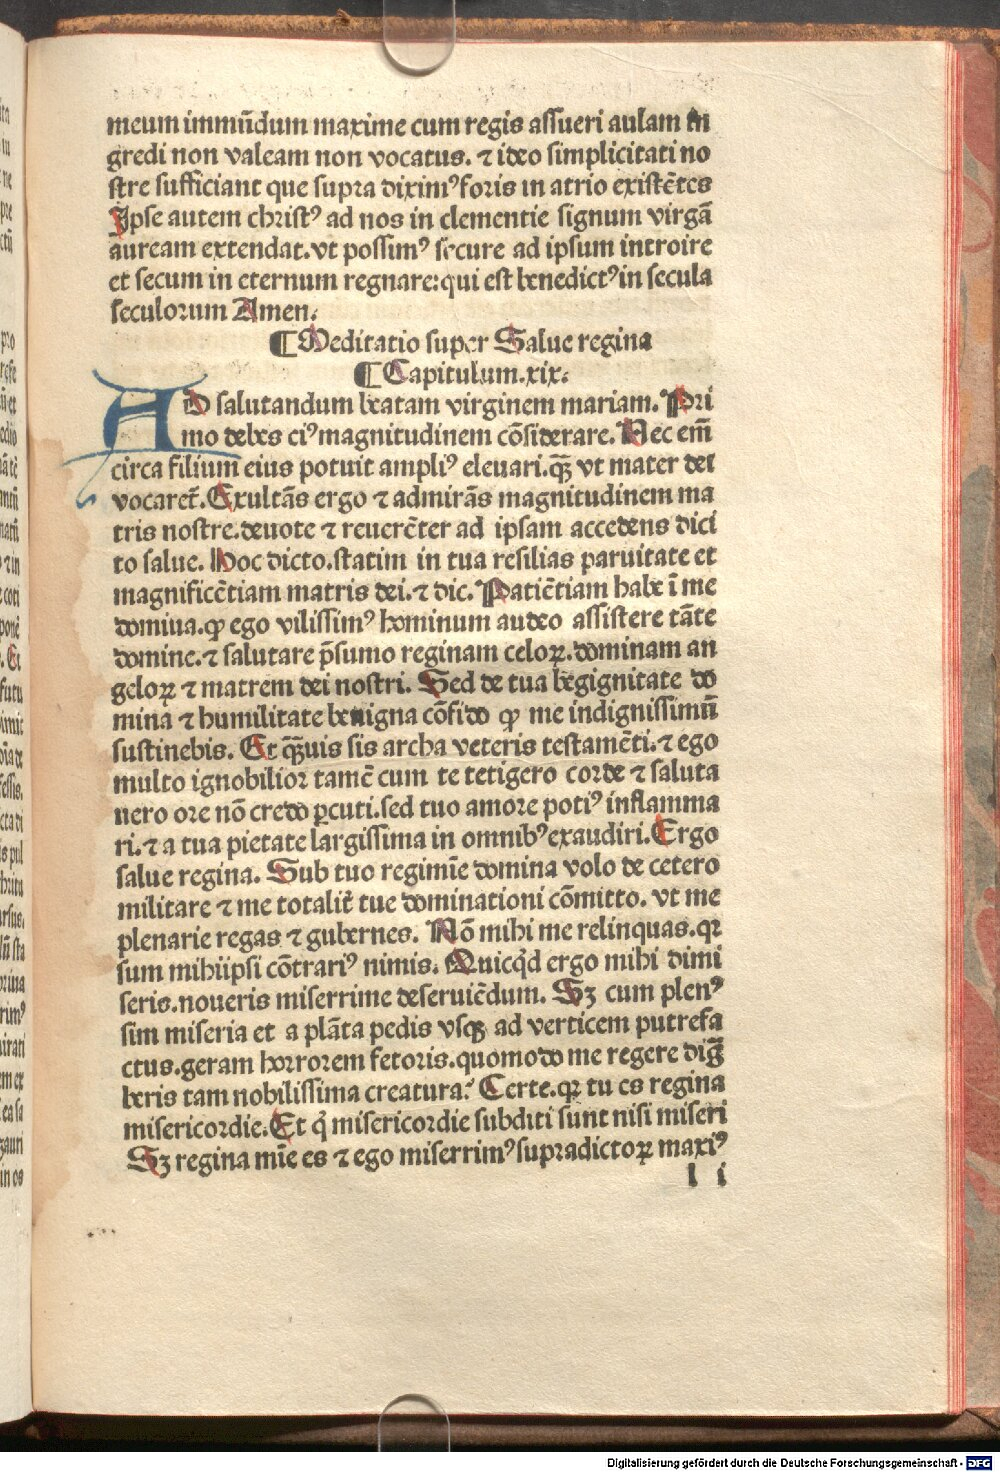 meum immūdum maxime cum regis assueri aulam in
gredi non valeam non vocatus. ⁊ ideo simplicitati no
stre sufficiant que supra diximꝰ foris in atrio existētes
Ipse autem christꝰ ad nos in clementie signum virgā
auream extendat. vt possimꝰ secure ad ipsum introire
et secum in eternum regnare: qui est benedictꝰ in secula
seculorum Amen.
¶ Meditatio super Salue regina
¶ Capitulum. xix.
AD salutandum beatam virginem mariam. Pri
mo debes eiꝰ magnitudinem cōsiderare. Nec em̄
circa filium eius potuit ampliꝰ eleuari. qꝫ̄ vt mater dei
vocaret̄. Exultās ergo ⁊ admirās magnitudinem ma
tris nostre. deuote ⁊ reuerēter ad ipsam accedens dici
to salue. Hoc dicto. statim in tua resilias paruitate et
magnificētiam matris dei. ⁊ dic. Patiētiam habe ī me
domiua. ꝙ ego vilissimꝰ hominum audeo assistere tāte
domine. ⁊ salutare p̄sumo reginam celoꝝ. dominam an
geloꝝ ⁊ matrem dei nostri. Sed de tua begignitate do
mina ⁊ humilitate benigna cōfido ꝙ me indignissimū
sustinebis. Et qꝫ̄uis sis archa veteris testamēti. ⁊ ego
multo ignobilior tamē cum te tetigero corde ⁊ saluta
uero ore nō credo ꝑcuti. sed tuo amore potiꝰ inflamma
ri. ⁊ a tua pietate largissima in omnibꝰ exaudiri. Ergo
salue regina. Sub tuo regimīe domina volo de cetero
militare ⁊ me totalit̄ tue dominationi cōmitto. vt me
plenarie regas ⁊ gubernes. Nō mihi me relinquas. qꝛ
sum mihiipsi cōtrariꝰ nimis. Quicq̇d ergo mihi dimi
seris. noueris miserrime deseruiēdum. Sꝫ cum plenꝰ
sim miseria et a plāta pedis vsqꝫ ad verticem putrefa
ctus. geram horrorem fetoris. quomodo me regere dig̅
beris tam nobilissima creatura? Certe. qꝛ tu es regina
misericordie. Et q̇ misericordie subditi sunt nisi miseri
Sꝫ regina mīe es ⁊ ego miserrimꝰ supradictoꝝ maxiꝰ
l i
Digitalisierung gefördert durch die Deutsche Forschungsgemeinschaft - DFG